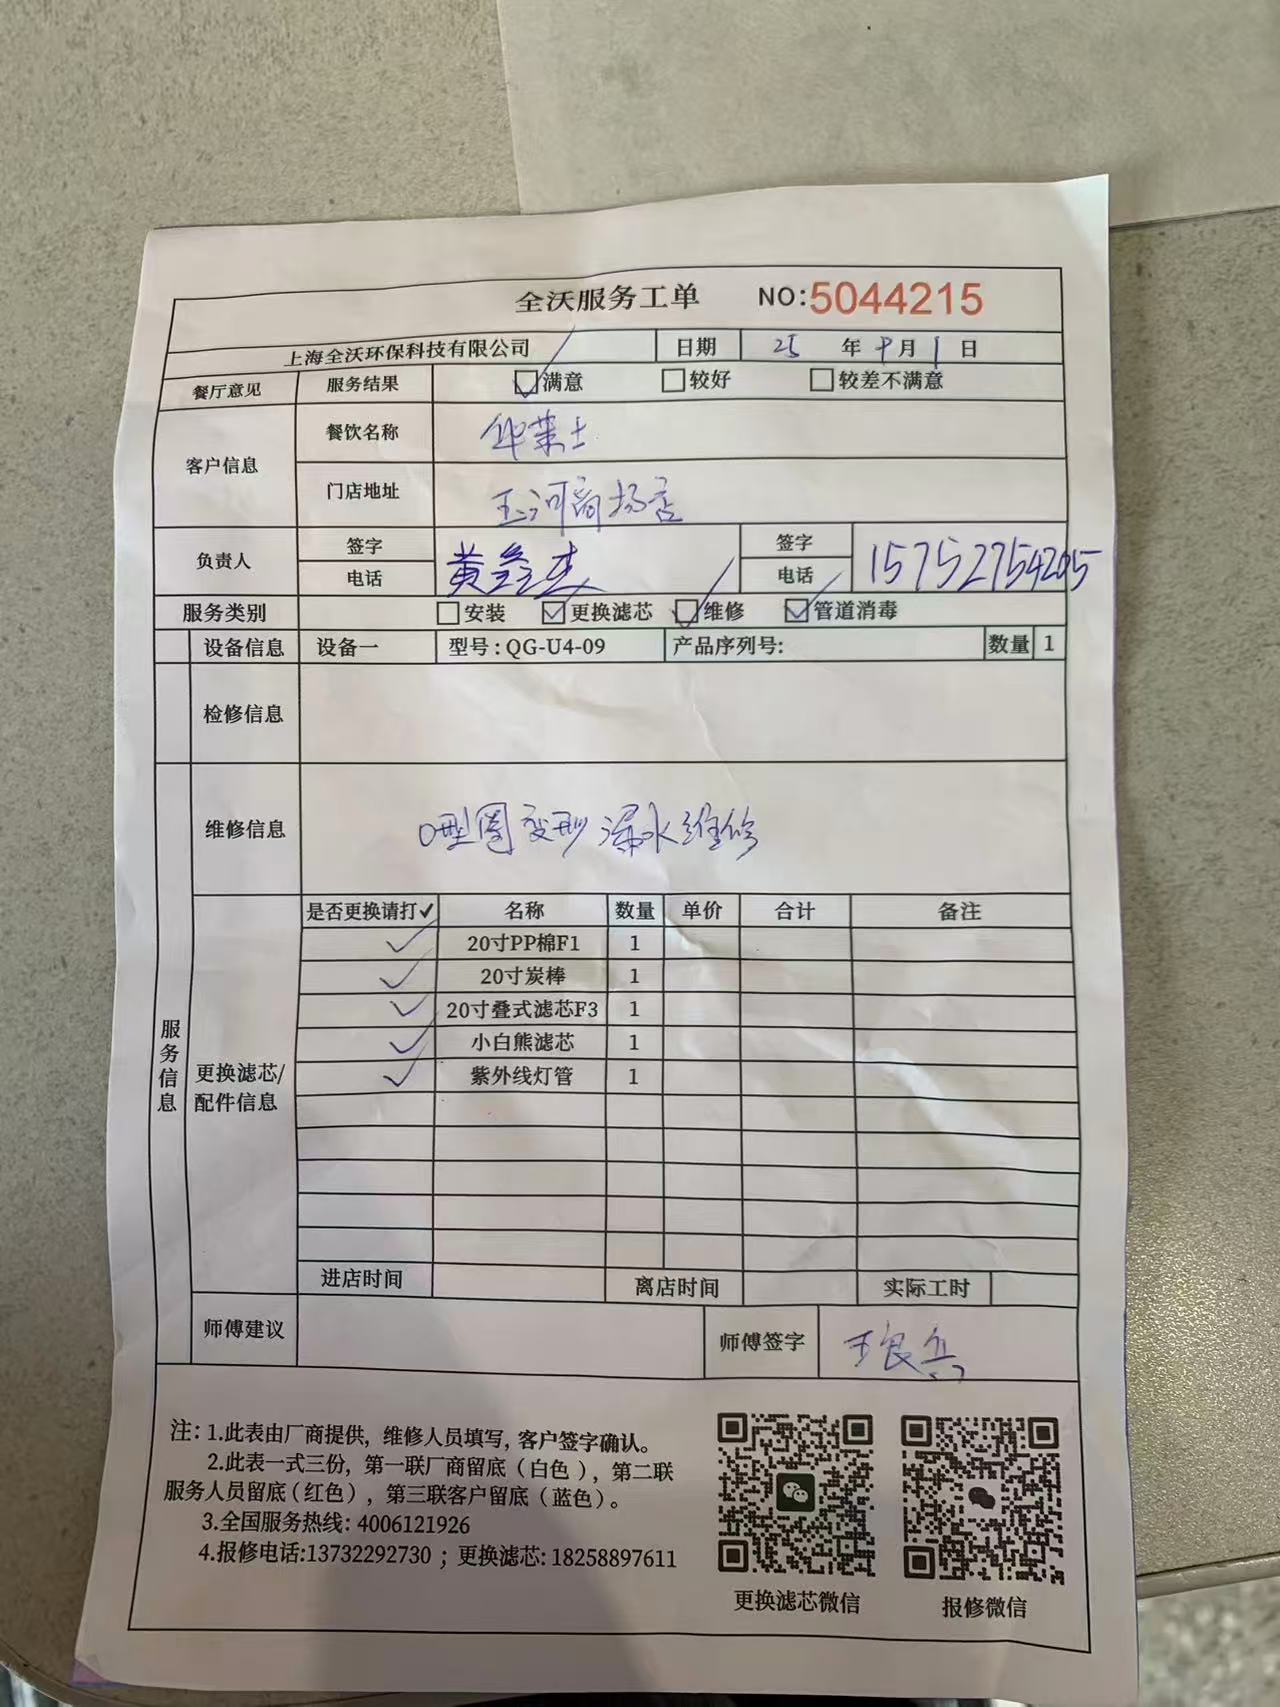 全沃服务工单 NO:5044215
上海全沃环保科技有限公司 日期 25 年 9 月 1 日
餐厅意见 服务结果 ☑满意 □较好 □较差不满意
客户信息 餐饮名称 华莱士
门店地址 玉河商场店
负责人 签字 黄鑫杰 签字
电话 电话 15752754205
服务类别 □安装 ☑更换滤芯 ☑维修 ☑管道消毒
设备信息 设备一 型号：QG-U4-09 产品序列号: 数量 1
检修信息
维修信息 O型圈变形 漏水维修
服务信息
更换滤芯/配件信息
是否更换请打✓ 名称 数量 单价 合计 备注
✓ 20寸PP棉F1 1
✓ 20寸炭棒 1
✓ 20寸叠式滤芯F3 1
✓ 小白熊滤芯 1
✓ 紫外线灯管 1
进店时间 离店时间 实际工时
师傅建议 师傅签字 王良兵
注：1.此表由厂商提供，维修人员填写，客户签字确认。
2.此表一式三份，第一联厂商留底（白色），第二联
服务人员留底（红色），第三联客户留底（蓝色）。
3.全国服务热线：4006121926
4.报修电话:13732292730 ；更换滤芯: 18258897611
更换滤芯微信 报修微信